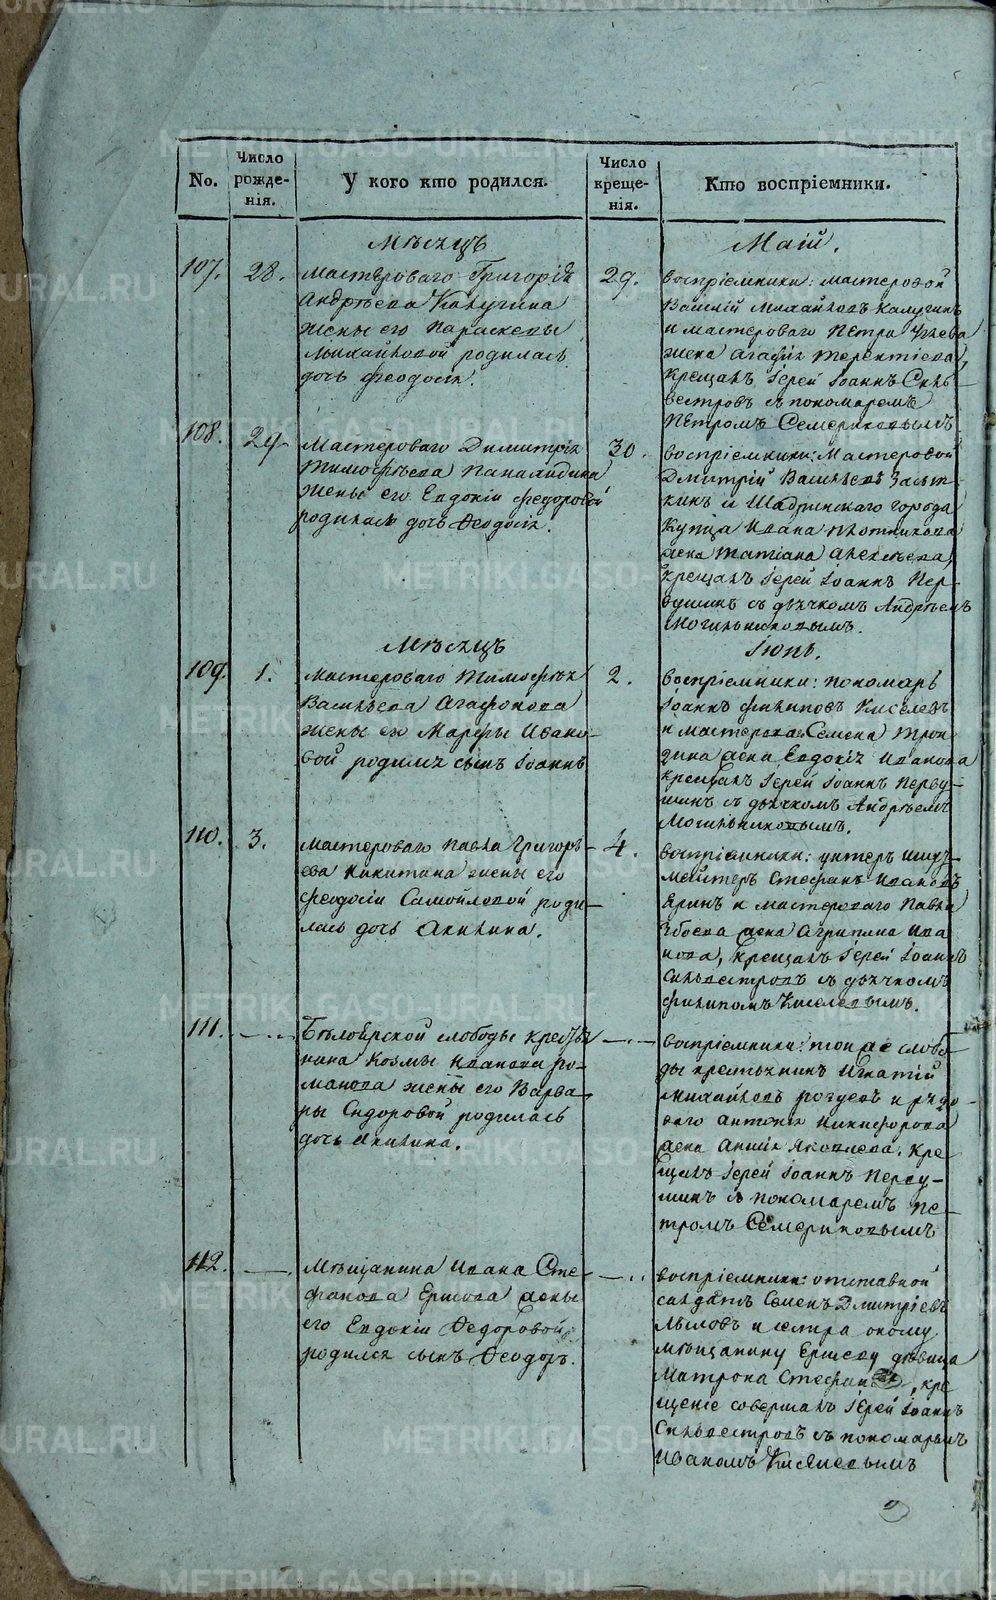 No.
Число рожде-нія.
У кого кто родился.
Число креще-нія.
Кто воспріемники.
Мѣсяцъ
Маій.
107.
28.
Мастероваго Григорія
Андрѣева Калугина
жены его Параскевы
Михайловой родилась
дочь Феодосія.
29.
воспріемники: мастеровой
Василій Михайловъ Калугинъ
и мастероваго Петра
жена Агафія Терентіева,
крещалъ Іерей Іоаннъ Силь-
вестровъ съ пономаремъ
Петромъ Семериковымъ
108.
29.
Мастероваго Димитрія
Тимофѣева
жены его Евдокіи Федоровой
родилась дочь Ѳеодосія.
30.
воспріемники: Мастеровой
Дмитрій Васильевъ
и Шадринскаго города
купца Ивана Плотникова
жена Татіана Алексѣева,
крещалъ Іерей Іоаннъ Пер-
вушинъ съ дьячкомъ Андрѣемъ
Могильниковымъ.
Мѣсяцъ
Іюнь.
109.
1.
Мастероваго Тимофѣя
Васильева Агафонова
жены его Марфы Ивано-
вой родился сынъ Іоаннъ
2.
воспріемники: пономарь
Іоаннъ Филиповъ Киселевъ
и мастероваго Семена
жена Евдокія Иванова
крещалъ Іерей Іоаннъ Перву-
шинъ съ дьячкомъ Андрѣемъ
Могильниковымъ.
110.
3.
Мастероваго Павла Григорь-
ева Никитина жены его
Феодосіи Самойловой роди-
лась дочь Акилина.
4.
воспріемники: унтеръ Шихт-
мейстеръ Стефанъ Ивановъ
Яринъ и мастероваго Павла
жена Агрипина Ива-
нова, крещалъ Іерей Іоаннъ
Сильвестровъ съ дьячкомъ
Филипомъ Киселевымъ.
111.
Бѣлоярской слободы крестья-
нина Козмы Иванова Ро-
манова жены его Варва-
ры Сидоровой родилась
дочь Акилина.
воспріемники: той же слобо-
ды крестьянинъ Игнатій
Михайловъ и рядо-
ваго Антонія Никифорова
жена Анна Яковлева, кре-
щалъ Іерей Іоаннъ Перву-
шинъ съ пономаремъ Пе-
тромъ Семериковымъ
112.
Мѣщанина Ивана Сте-
фанова Ершова жены
его Евдокіи Ѳедоровой
родился сынъ Ѳеодоръ.
воспріемники: отставной
салдатъ Семенъ Дмитріевъ
и сестра оному
мѣщанину Ершову дѣвица
Матрона, кре
щеніе совершалъ Іерей Іоаннъ
Сильвестровъ съ пономарьмъ
Иваномъ Киселевымъ
METRIKI.GASO-URAL.RU